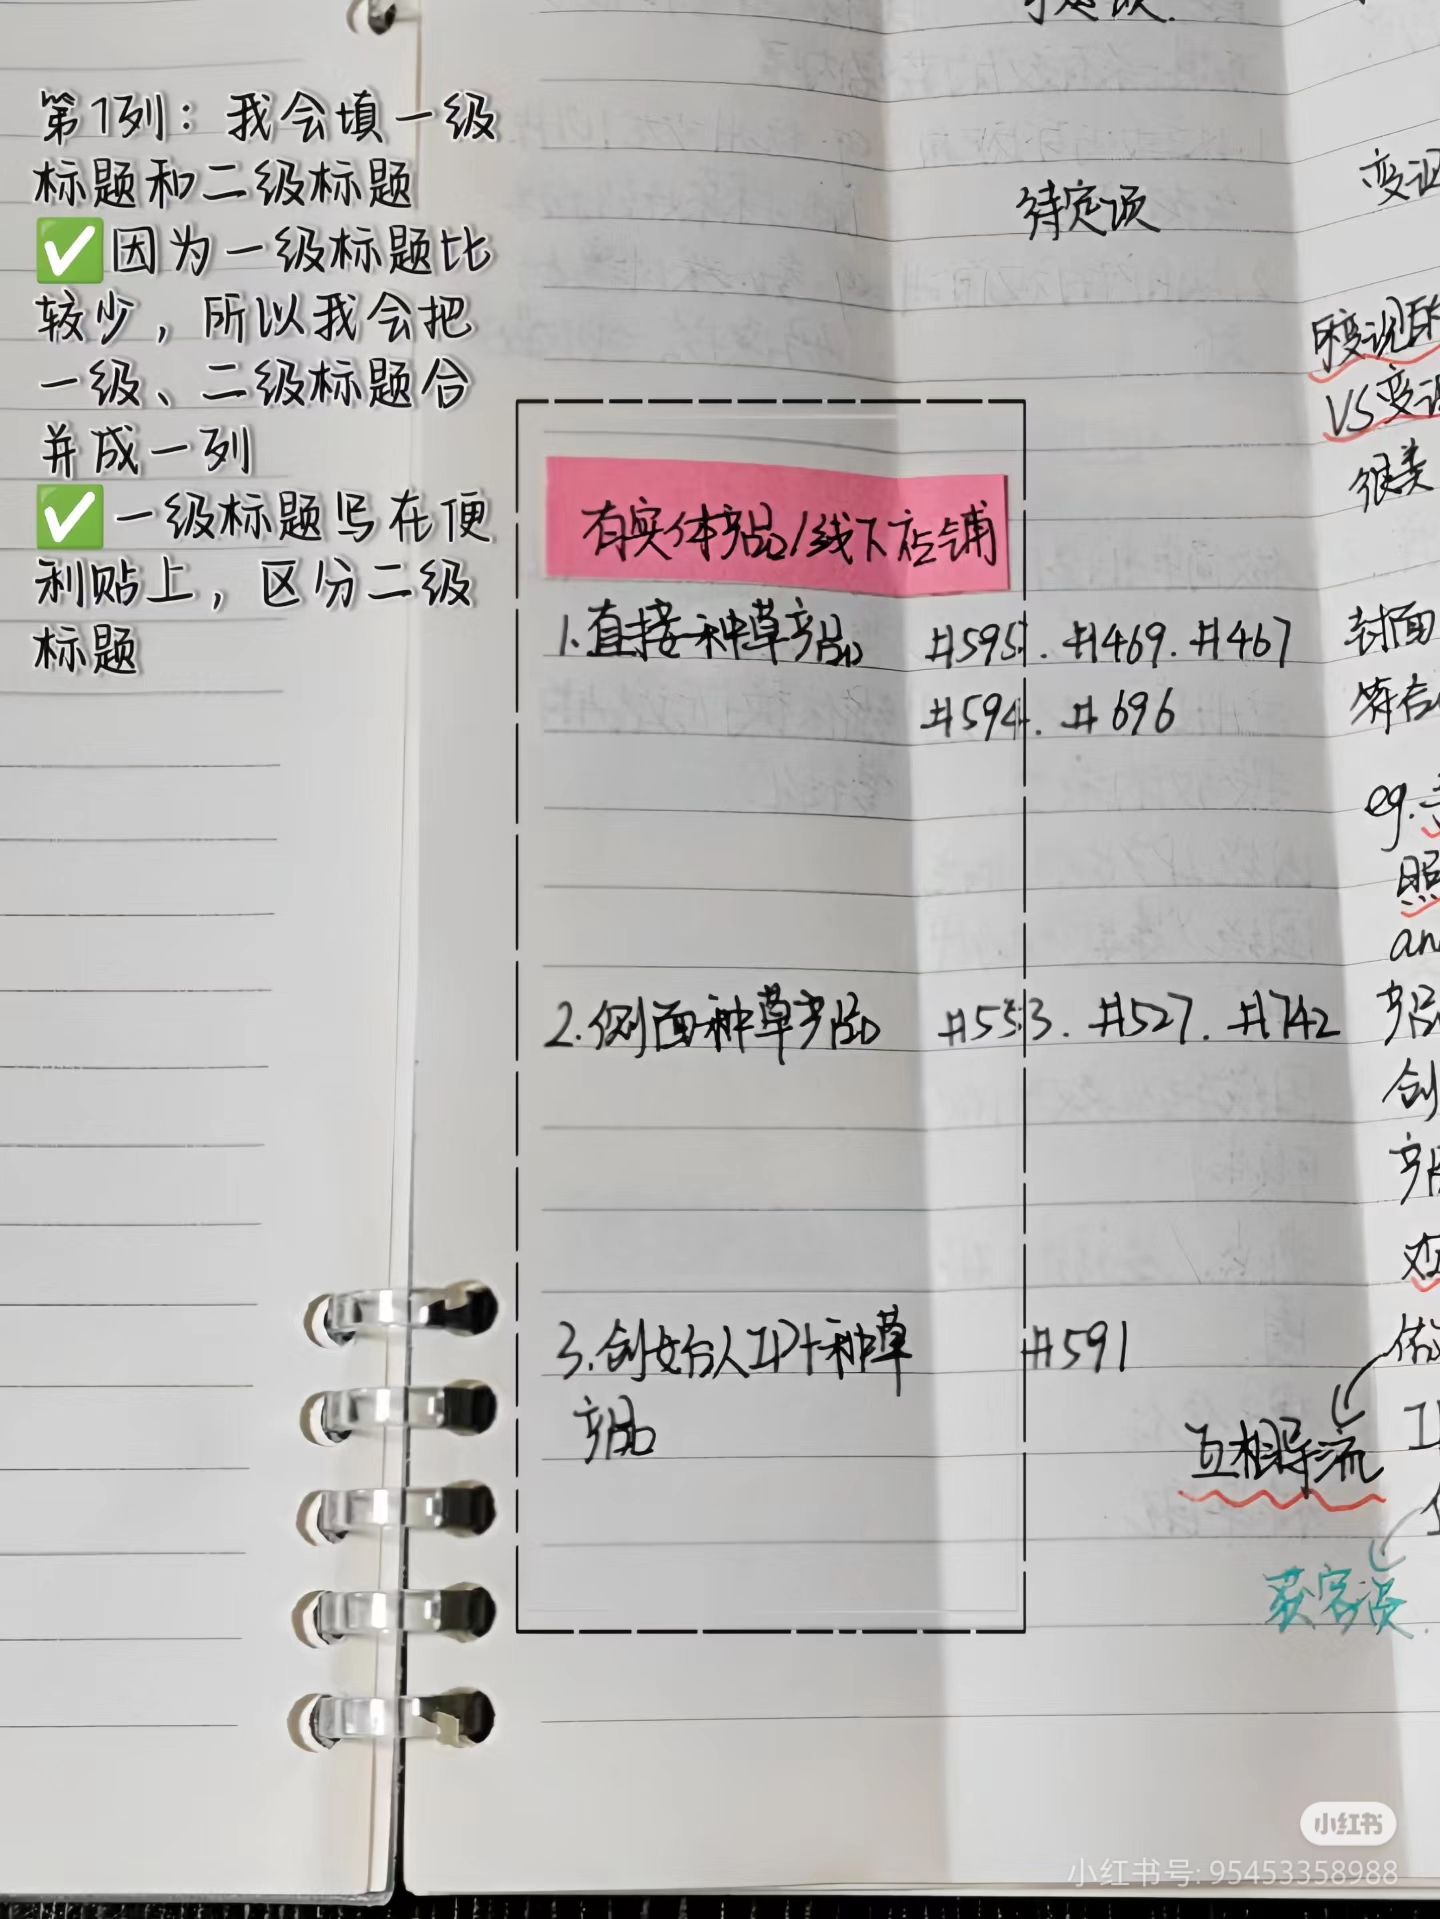 第1列：我会填一级
标题和二级标题
✅因为一级标题比
较少，所以我会把
一级、二级标题合
并成一列
✅一级标题写在便
利贴上，区分二级
标题
待定项.
待定项
有实体产品/线下店铺
1.直接种草产品 #595. #469. #467
#594. #696
2.侧面种草产品 #553. #527. #742
3.创始人IP+种草 #591
产品
VS变
很类
封面
符合
eg.
照
产品
创
互相导流
获客
小红书
小红书号: 95453358988